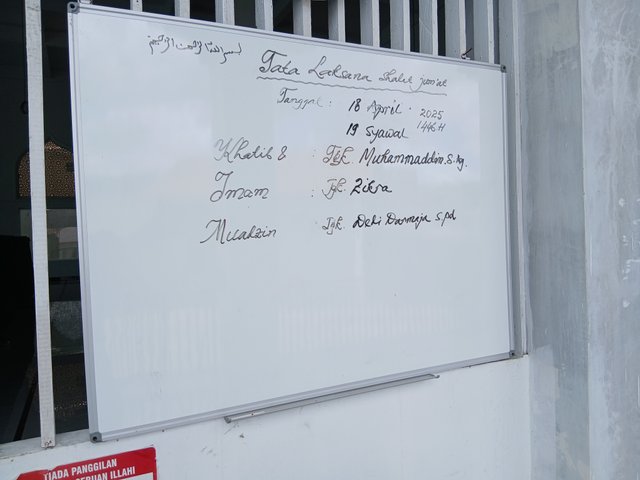 بسم الله الرحمن الرحيم
Tata Laksana Shalat jum'at
Tanggal : 18 April 2025
19 Syawal 1446 H
Khatib & : Tgk. Muhammaddin.S.Ag.
Imam : Tgk. Zikra
Muadzin Tgk. Dedi Darmaja S.pd
TIADA PANGGILAN
SERUAN ILLAHI